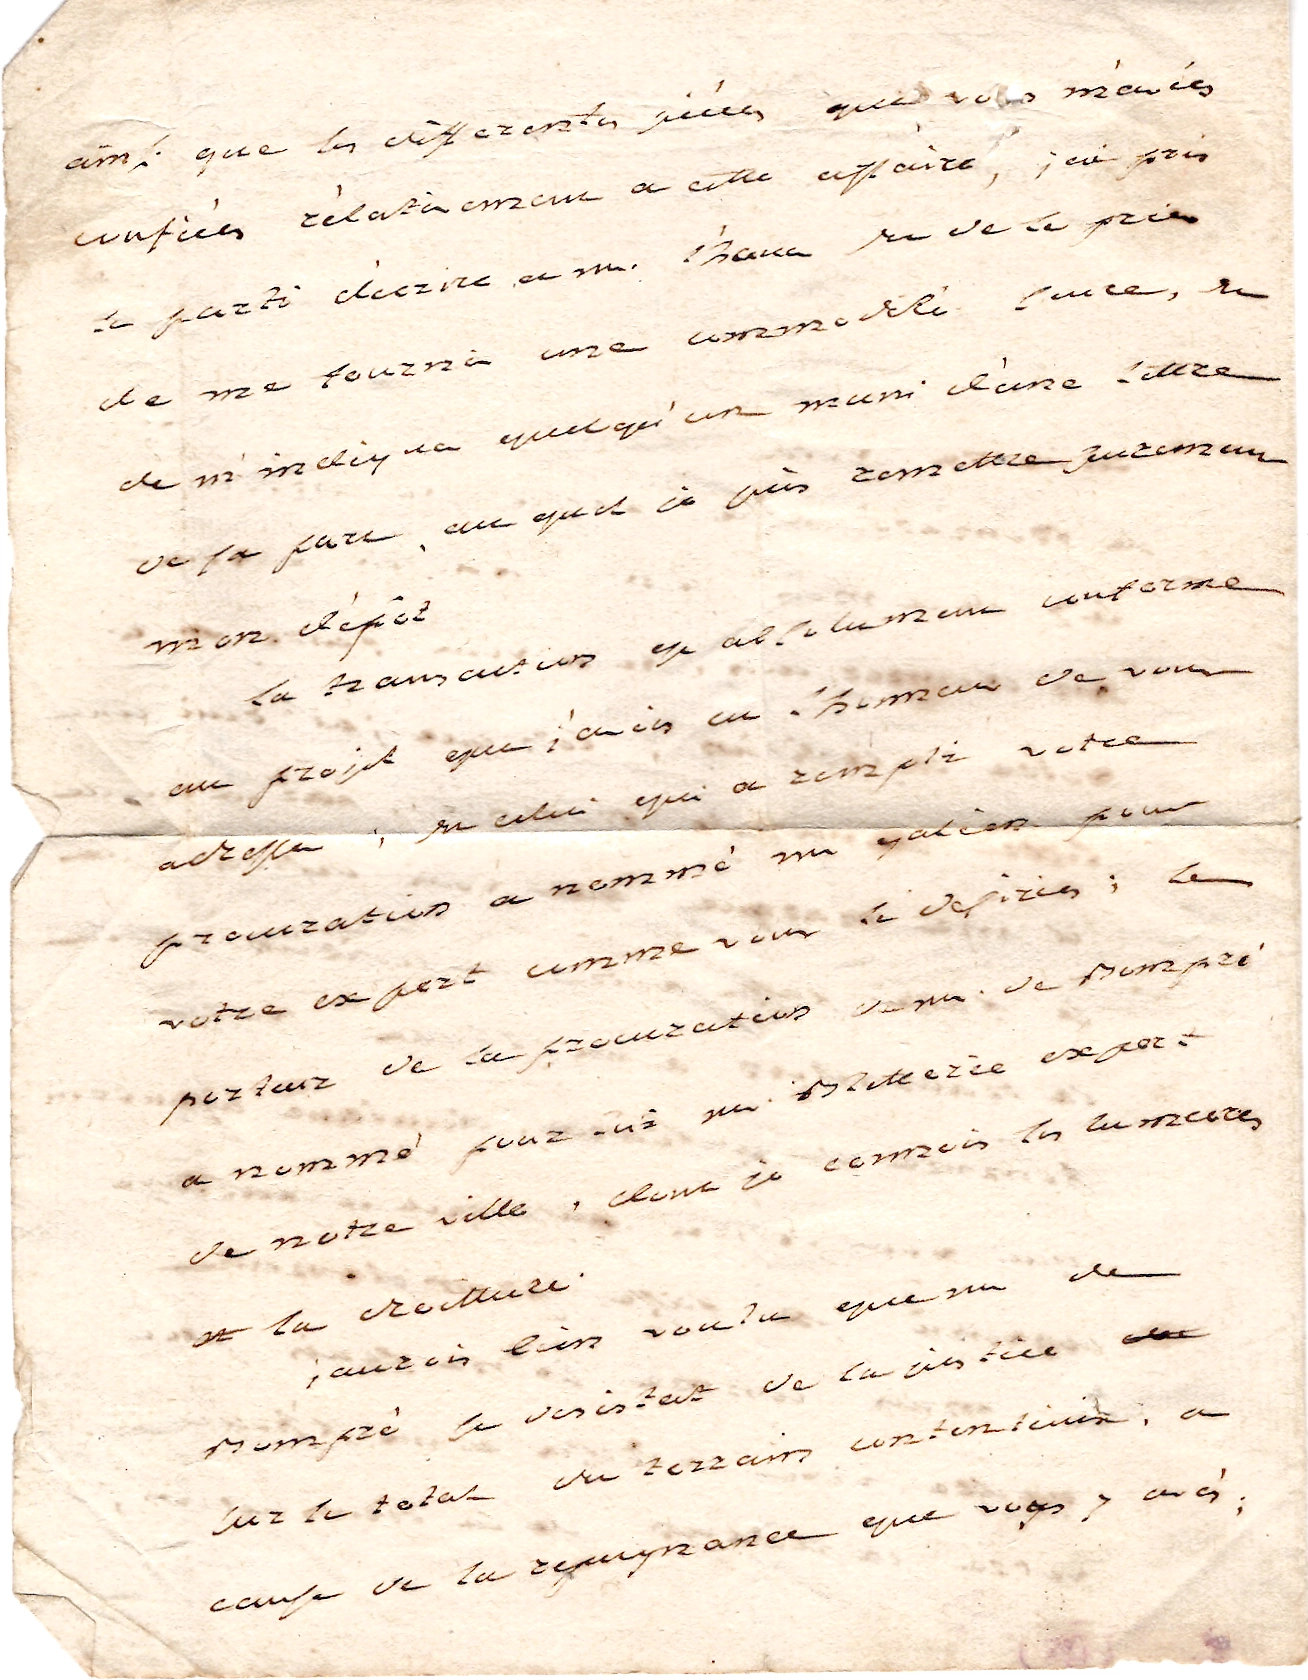 ainsi que les differentes piéces que vous m'aviés
confiées rélativement a cette affaire, j'ai pris
le parti décrire a m. et de le prier
de me fournir une commodité sure, et
de m'indiquer quelqu'un muni d'une lettre
de sa part, au quel je puis remettre surement
mon dépôt
la transaction est absolument conforme
au projet que j'avois eu l'honneur de vous
adresser, et celui qui a rempli votre
procuration a nommé mr pour
votre expert comme vous le desiriés; le
porteur de la procuration de m. de Dompré
a nommé pour lui m. expert
de notre ville, dont je connois les lumieres
et la droitture.
j'aurois bien voulu que m de
Dompré se desistat de la justice
sur le total du terrains contentieux, a
cause de la repugnance que vous y avés;